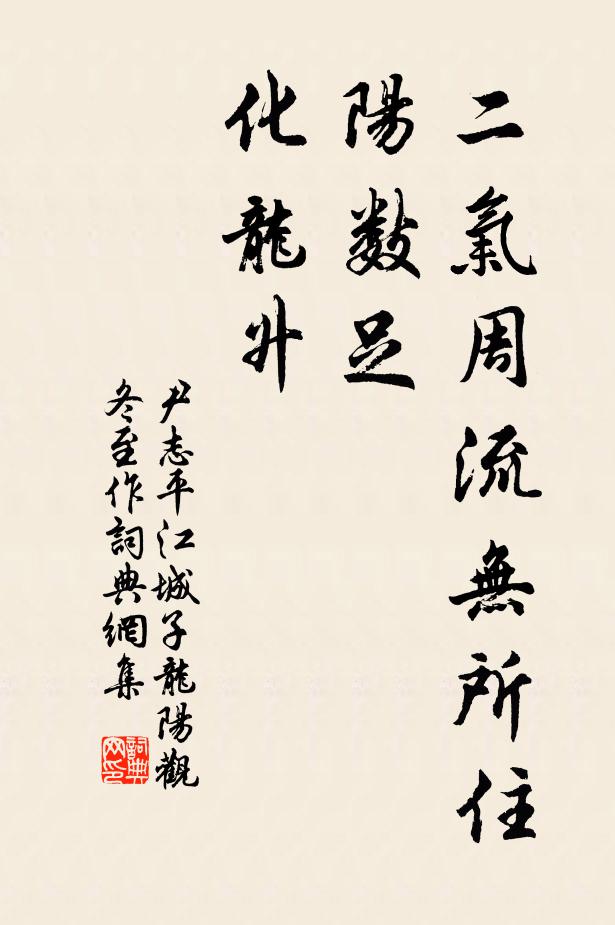 二氣周流無所住
陽數足
化龍升
尹志平江城子龍陽觀
冬至作詞典網集
詞典
网印